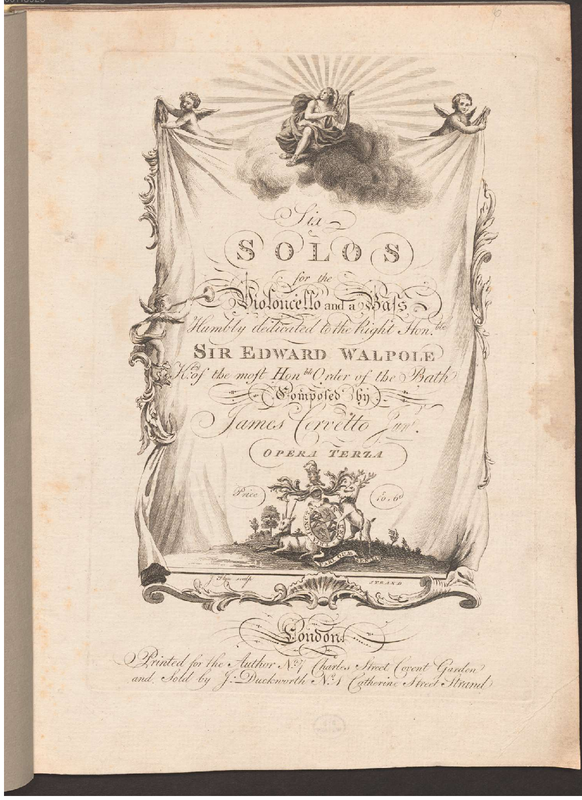 Six
SOLOS
for the
Violoncello and a Bass
Humbly dedicated to the Right Hon.ble
SIR EDWARD WALPOLE
K.t of the most Hon.ble Order of the Bath
Composed by
James Cervetto Jun.r
OPERA TERZA
Price 10.6d
sculp. STRAND
London
Printed for the Author No. 7 Charles Street Covent Garden
and Sold by J. Duckworth No. 1 Catherine Street Strand